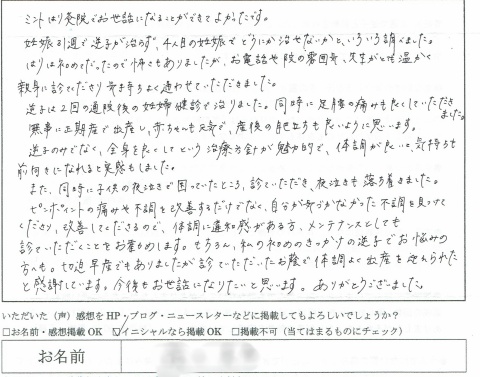 ミントはり灸院でお世話になることができてよかったです。
妊娠31週で逆子が治らず、4人目の妊娠でどうにか治せないかと、いろいろ調べました。
はりは初めてだったので怖さもありましたが、お電話や院の雰囲気、先生がとても温かく
親身に診てくださり 安心して通わせていただきました。
逆子は2回の通院後の妊婦健診で治りました。同時に足腰の痛みも良くしていただきました。
無事に正期産で出産し、赤ちゃんも元気で、産後の肥立ちも良いように思います。
逆子のみでなく、全身を良くして という治療方針が魅力的で、体調が良いと、気持ちも
前向きになれると実感もしました。
また、同時に子供の夜泣きで困っていたところ、診ていただき、夜泣きも落ち着きました。
ピンポイントの痛みや不調を改善するだけでなく、自分が気づかなかった不調を見つけて
くださり、改善してくださるので、体調に違和感がある方、メンテナンスとしても
診ていただくことをお薦めします。もちろん、私の初めのきっかけの逆子でお悩みの
方へも。切迫早産でもありましたが診ていただいたお蔭で体調よく出産を迎えられた
と感謝しています。今後もお世話になりたいと思います。ありがとうございました。
いただいた（声）感想をHP・ブログ・ニュースレターなどに掲載してもよろしいでしょうか？
□お名前・感想掲載OK ☑イニシャルなら掲載OK □掲載不可（当てはまるものにチェック）
お名前